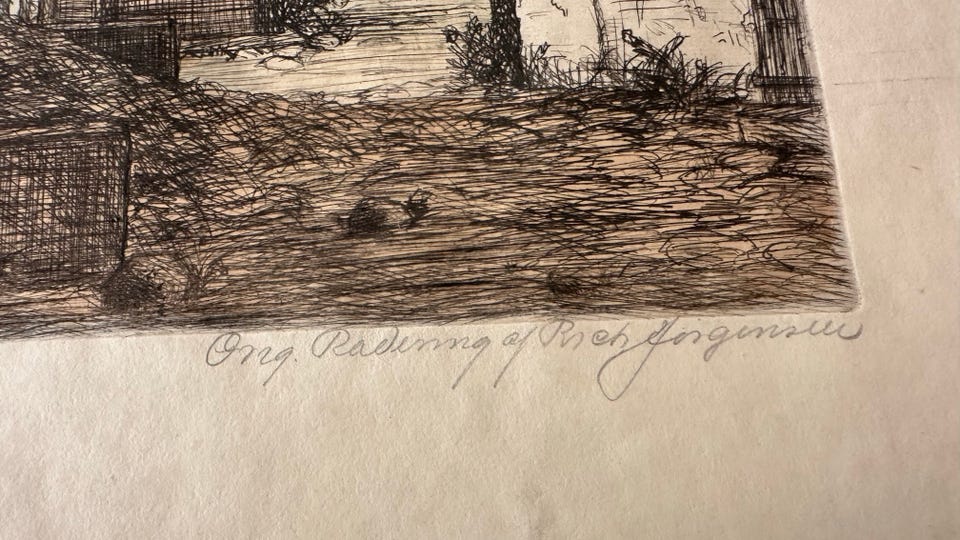 Orig. Radering af Rich Jörgensen